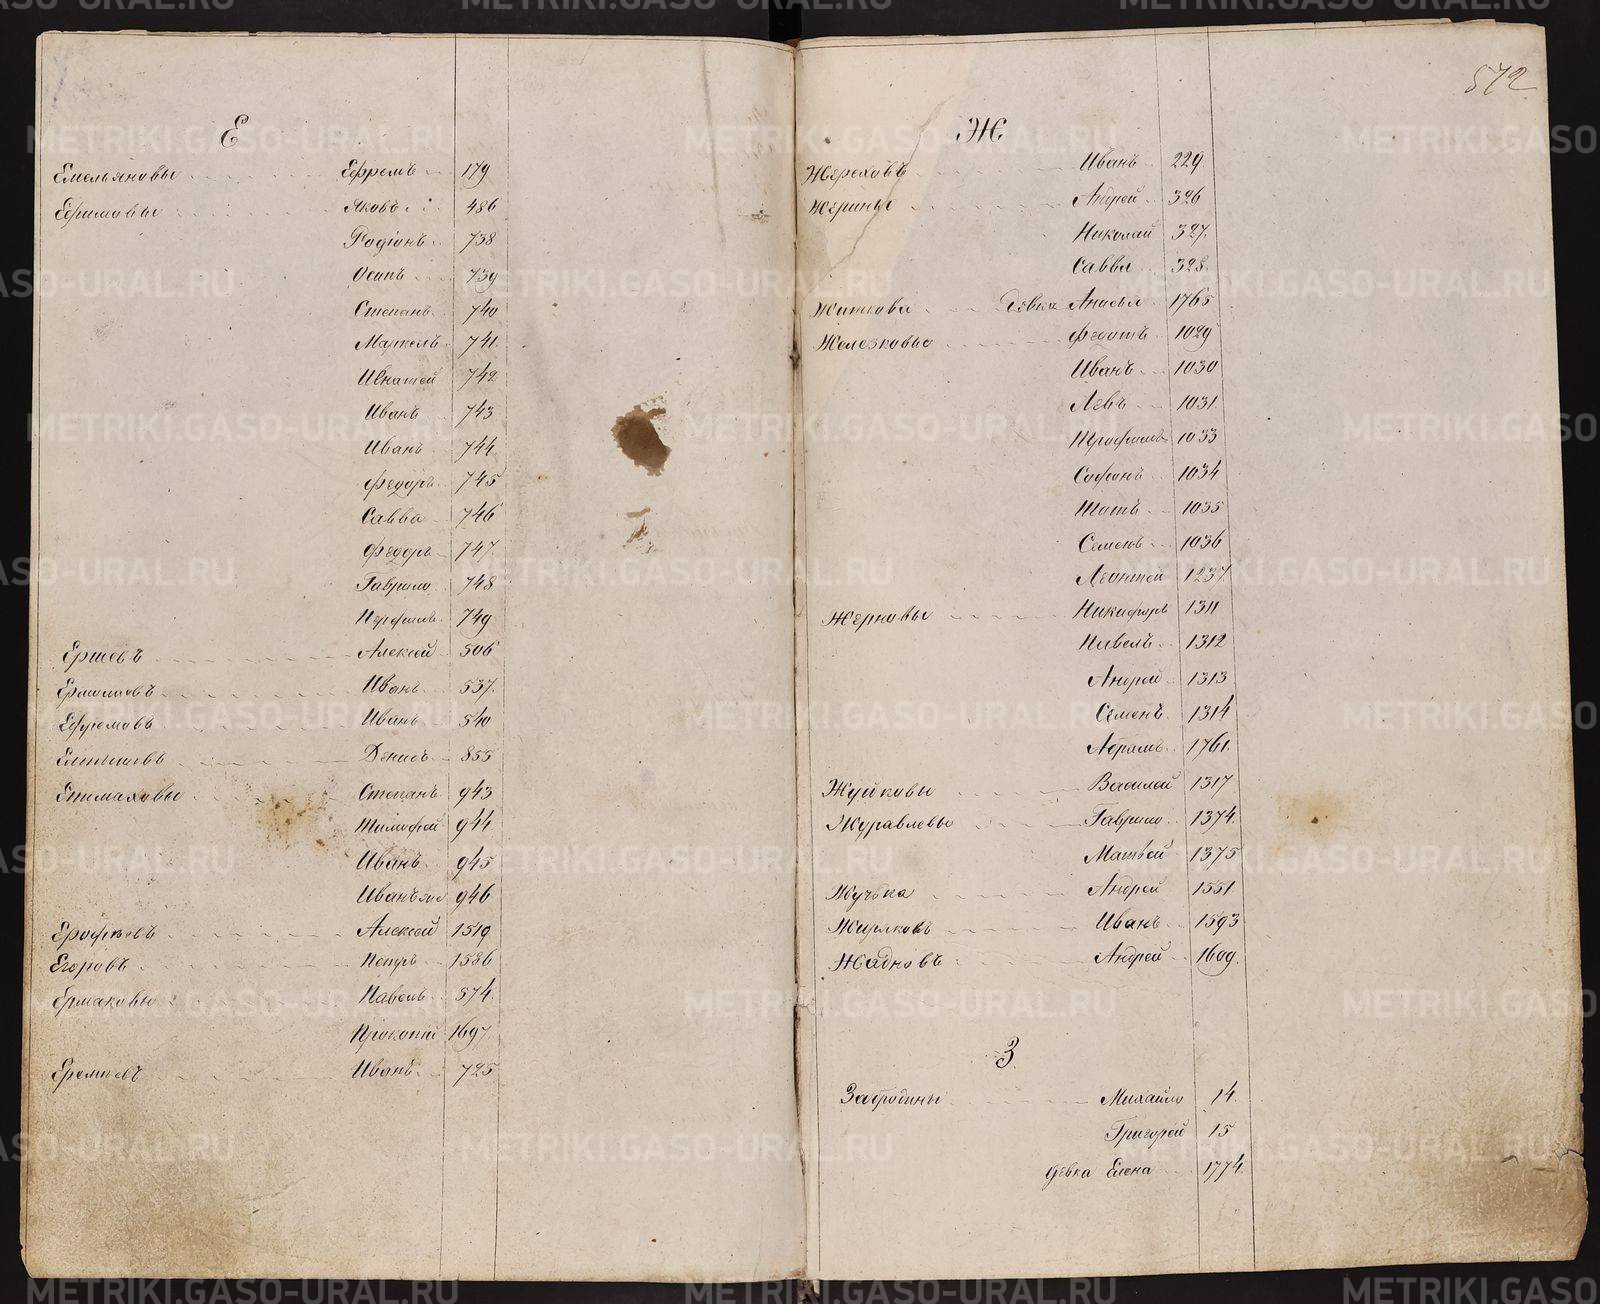 Е
Емельяновы Ефремъ 179
Ефимовы Яковъ 486
Родіонъ 738
Осипъ 739
Степанъ 740
Маркелъ 741
Игнатей 742
Иванъ 743
Иванъ 744
Федоръ 745
Савва 746
Федоръ 747
Гаврило 748
Перфилъ 749
Ершевъ Алексей 506
Ермолаевъ Иванъ 537
Ефремовъ Иванъ 540
Денисъ 855
Епимаховы Степанъ 943
Тимофей 944
Иванъ 945
Иванъ 946
Ерофеевъ Алексей 1519
Егоровъ Петръ 1586
Ермаковы Павелъ 574
Прокопій 1697
Еремеевъ Иванъ 725
572
Ж
Жереховъ Иванъ 229
Жерины Андрей 326
Николай 327
Савва 328
Житкова девка Анисья 1765
Железковы Федотъ 1029
Иванъ 1030
Левъ 1031
Трофимъ 1033
Софонъ 1034
Титъ 1035
Семенъ 1036
Леонтей 1237
Жерновы Никифоръ 1311
Павелъ 1312
Андрей 1313
Семенъ 1314
Абрамъ 1761
Жуйковы Василей 1317
Журавлевы Гаврило 1374
Матвей 1375
Жучька Андрей 1551
Жиряковъ Иванъ 1593
Жадновъ Андрей 1609
З
Забродины Михайло 14
Григорей 15
девка Елена 1774
METRIKI.GASO-URAL.RU